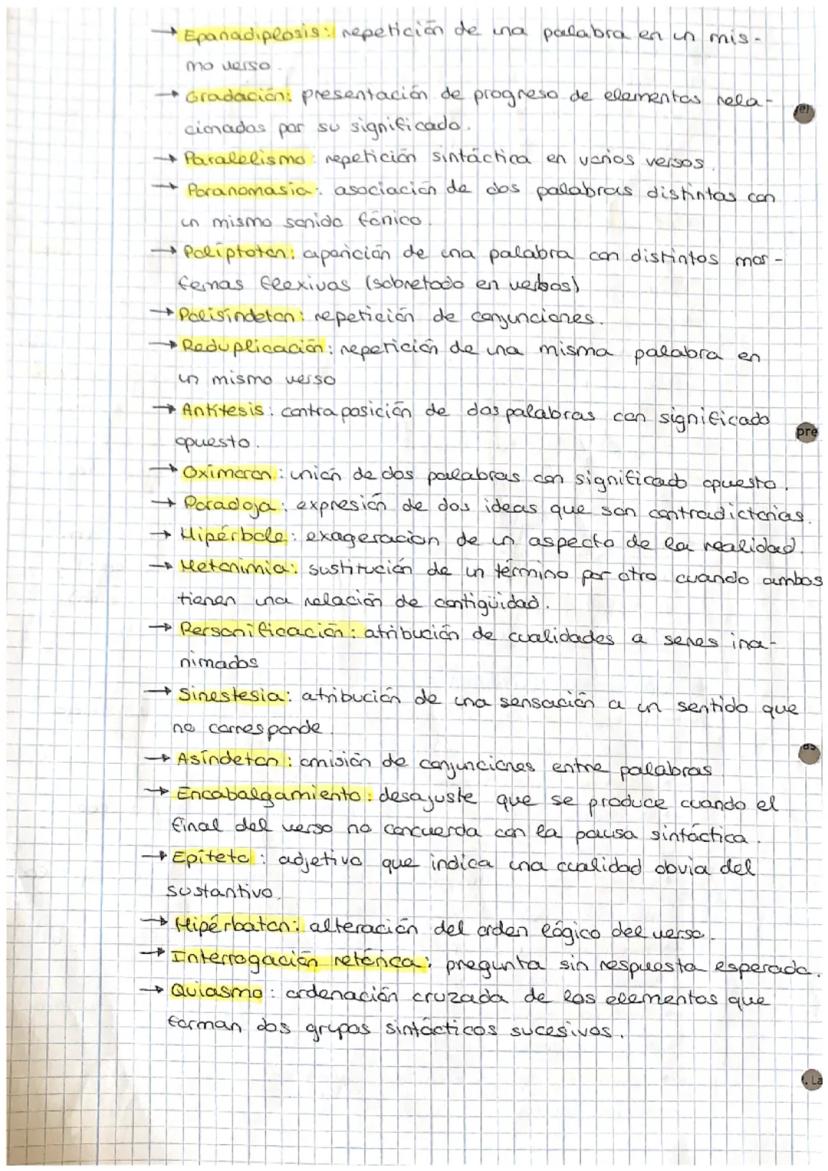 → Epanadiplosis: repetición de una palabra en un mis-
mo verso.
→ Gradación: presentación de progreso de elementos rela-
cionados por su significado.
→ Paralelismo: repetición sintáctica en varios versos.
→ Paranomasia: asociación de dos palabras distintas con
un mismo sonido fónico.
→ Políptoton: aparición de una palabra con distintos mor-
femas flexivos (sobretodo en verbos)
→ Polisíndeton: repetición de conjunciones.
→ Reduplicación: repetición de una misma palabra en
un mismo verso
→ Antítesis: contraposición de dos palabras con significado
opuesto.
→ Oxímoron: unión de dos palabras con significado opuesto.
→ Paradoja: expresión de dos ideas que son contradictorias.
→ Hipérbole: exageración de un aspecto de la realidad.
→ Metonimia: sustitución de un término por otro cuando ambos
tienen una relación de contigüidad.
→ Personificación: atribución de cualidades a seres ina-
nimados
→ Sinestesia: atribución de una sensación a un sentido que
no corresponde.
→ Asíndeton: omisión de conjunciones entre palabras
→ Encabalgamiento: desajuste que se produce cuando el
final del verso no concuerda con la pausa sintáctica.
→ Epíteto: adjetivo que indica una cualidad obvia del
sustantivo.
→ Hipérbaton: alteración del orden lógico del verso.
→ Interrogación retórica: pregunta sin respuesta esperada.
→ Quiasmo: ordenación cruzada de los elementos que
forman dos grupos sintácticos sucesivos.
pre
. La